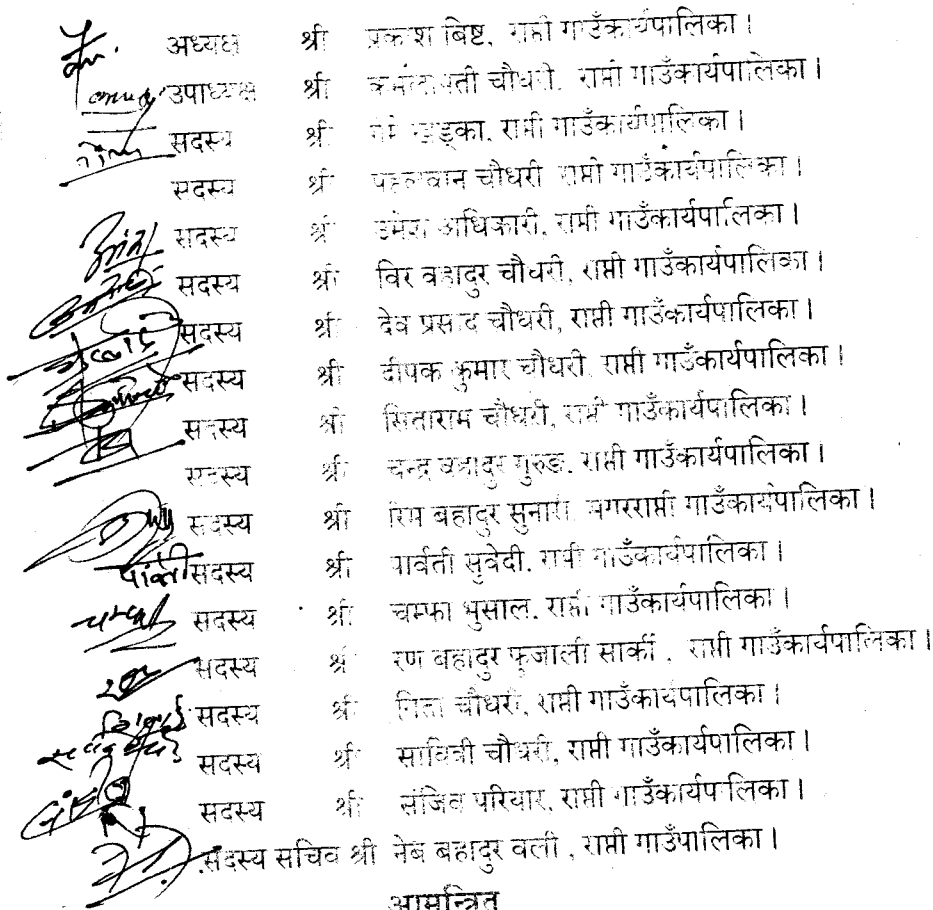 अध्यक्ष श्री प्रकाश बिष्ट, राप्ती गाउँकार्यपालिका।
उपाध्यक्ष श्री चौधरी, राप्ती गाउँकार्यपालिका।
सदस्य श्री खड्का, राप्ती गाउँकार्यपालिका।
सदस्य श्री पहलवान चौधरी राप्ती गाउँकार्यपालिका।
सदस्य श्री उमेश अधिकारी, राप्ती गाउँकार्यपालिका।
सदस्य श्री विर बहादुर चौधरी, राप्ती गाउँकार्यपालिका।
सदस्य श्री देव प्रसाद चौधरी, राप्ती गाउँकार्यपालिका।
सदस्य श्री दीपक कुमार चौधरी, राप्ती गाउँकार्यपालिका।
सदस्य श्री सिताराम चौधरी, राप्ती गाउँकार्यपालिका।
सदस्य श्री चन्द्र बहादुर गुरुङ, राप्ती गाउँकार्यपालिका।
सदस्य श्री रिम बहादुर सुनारी, मगरराप्ती गाउँकार्यपालिका।
पार्वती सदस्य श्री पार्वती सुवेदी, राप्ती गाउँकार्यपालिका।
सदस्य श्री चम्फा भुसाल, राप्ती गाउँकार्यपालिका।
सदस्य श्री रण बहादुर फुजाली सार्की , राप्ती गाउँकार्यपालिका।
सदस्य श्री चौधरी, राप्ती गाउँकार्यपालिका।
सदस्य श्री सावित्री चौधरी, राप्ती गाउँकार्यपालिका।
सदस्य श्री संजिव परियार, राप्ती गाउँकार्यपालिका।
सदस्य सचिव श्री नेब बहादुर वली , राप्ती गाउँपालिका।
आमन्त्रित